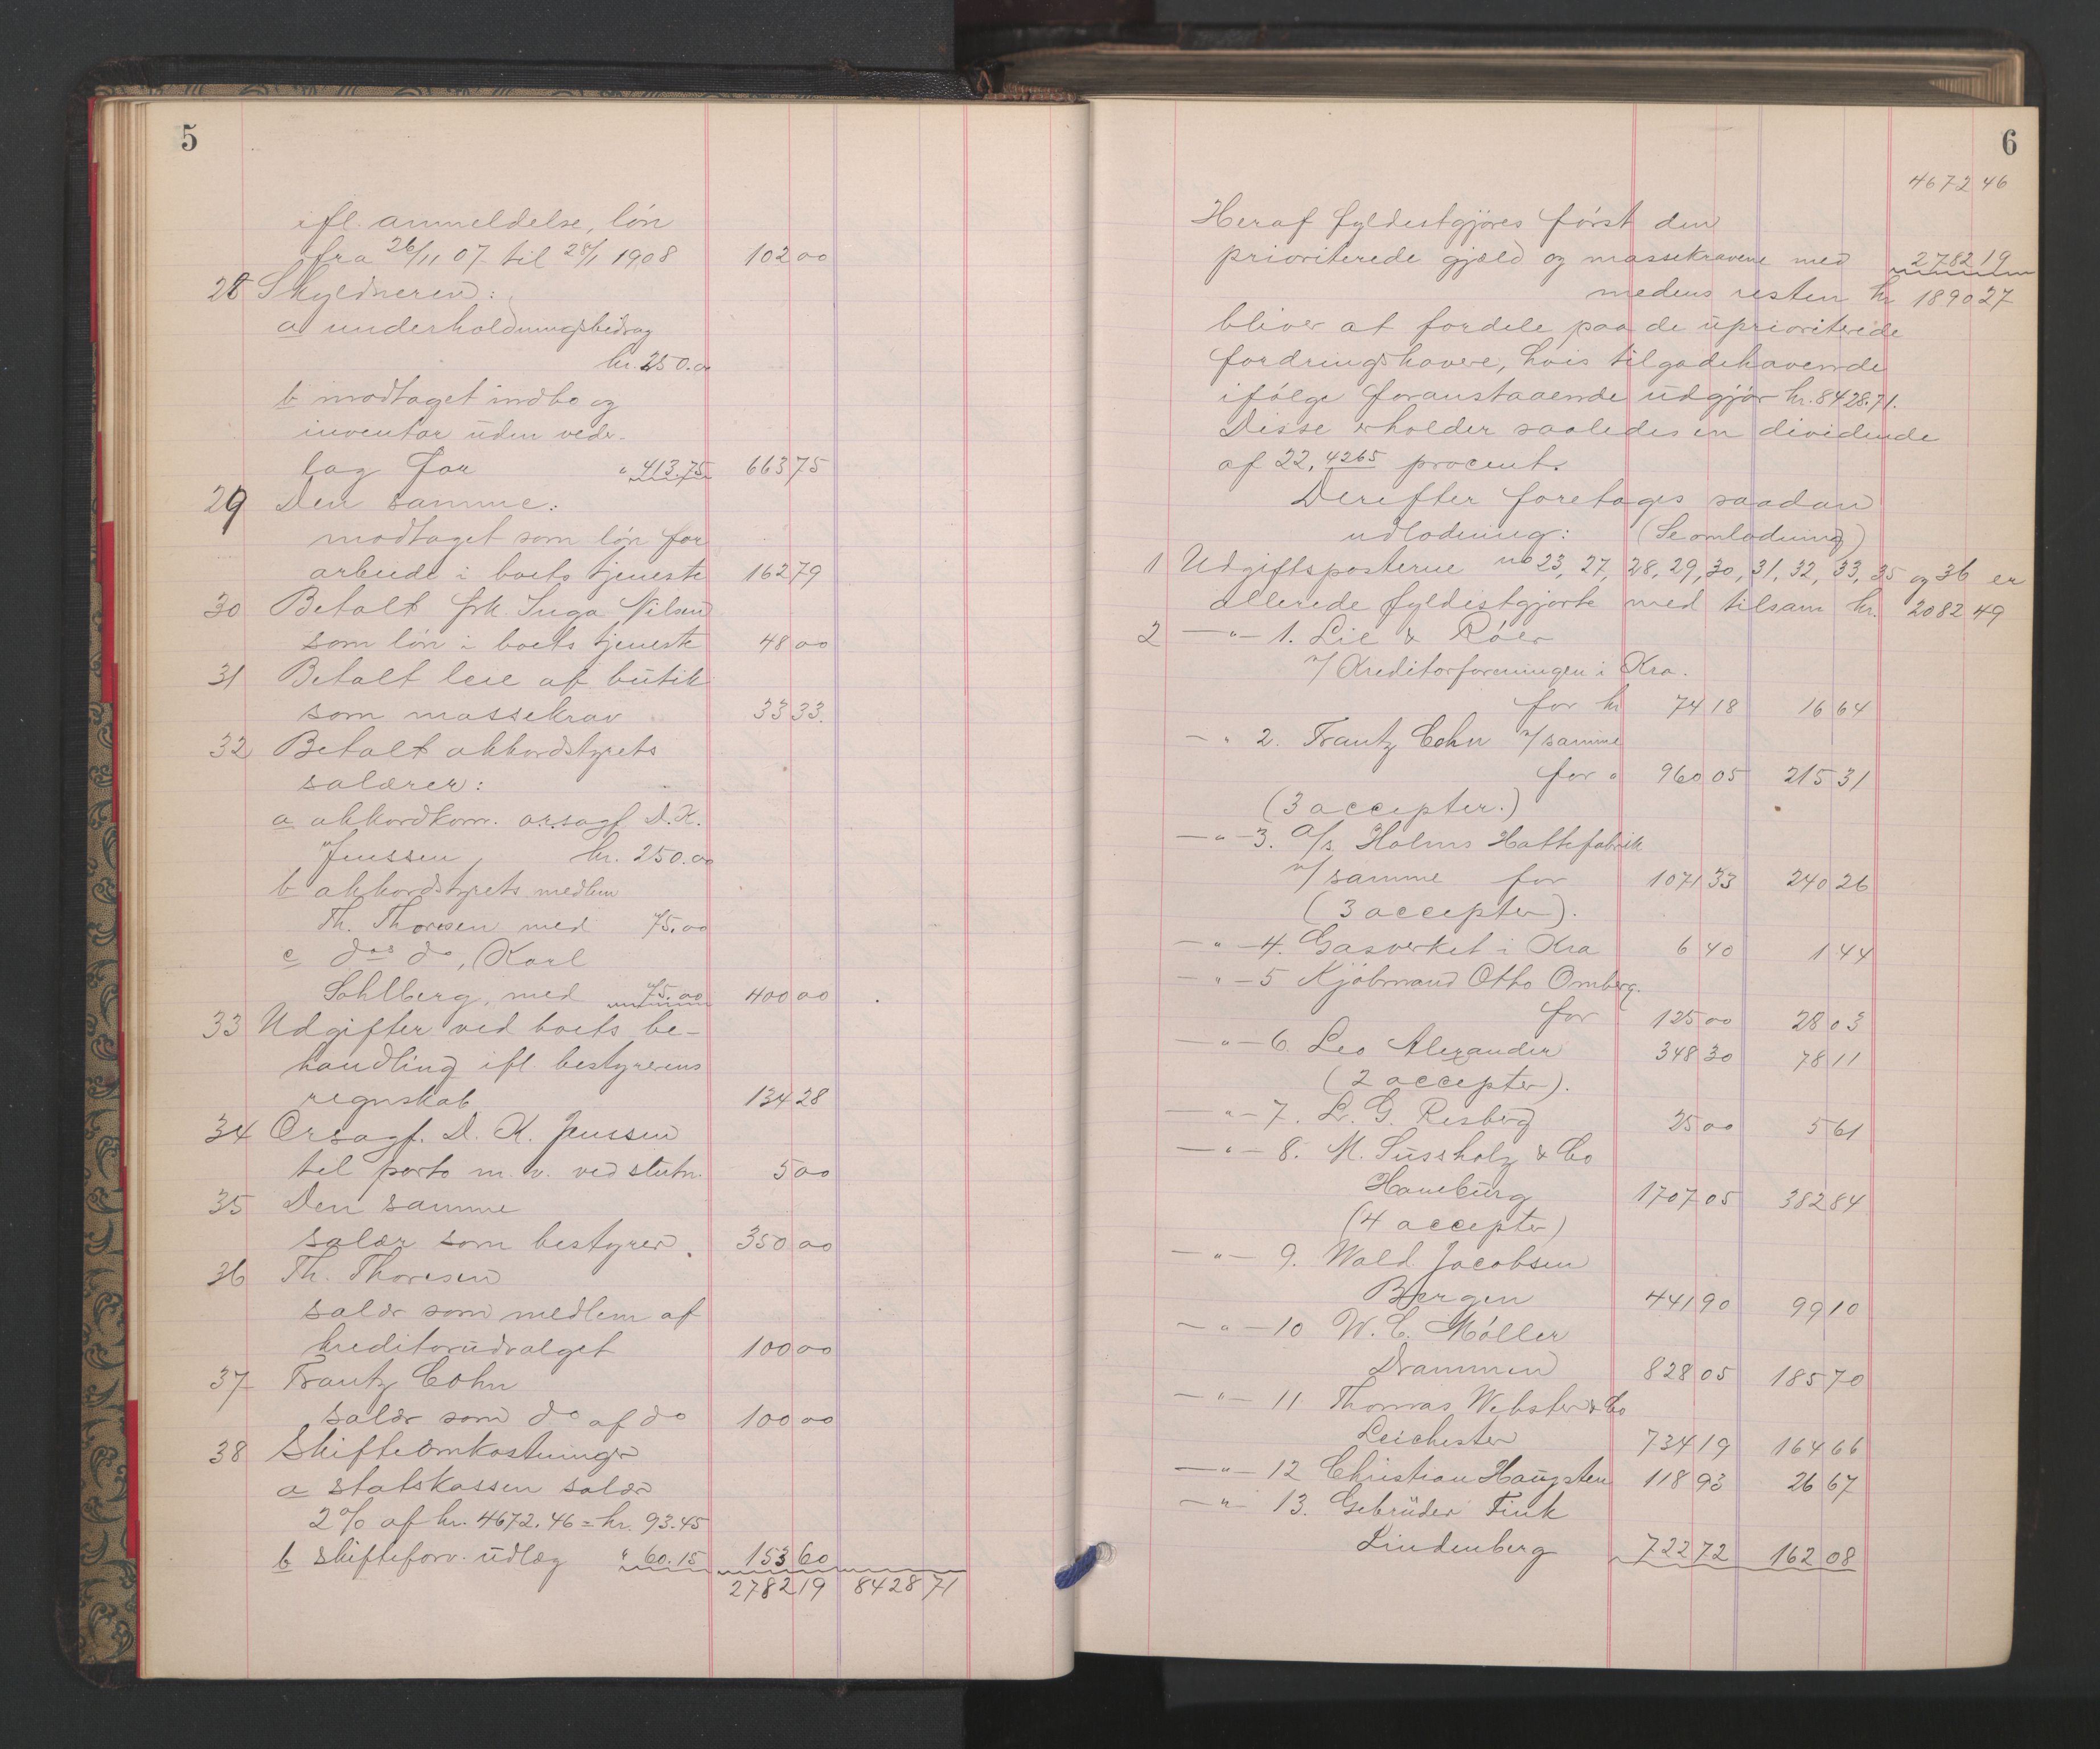 5
ifl. anmeldelse, løn
fra 26/11 07 til 28/1 1908 102 00
28 Skyldneren:
a underholdningsbidrag
kr. 250.00
b modtaget indbo og
inventar uden veder-
lag for " 413.75 663 75
29 Den samme:
modtaget som løn for
arbeide i boets tjeneste 162 79
30 Betalt frk. Inga Nilsen
som løn i boets tjeneste 48 00
31 Betalt leie af butik
som massekrav 33 33.
32 Betalt akkordstyrets
salærer:
a akkordkom. orsagf. D. K.
Jenssen, kr. 250.00
b akkordstyrets medlem
Th. Thoresen med 75.00
c dos do, Karl
Sohlberg, med 75.00 400 00
33 Udgifter ved boets be-
handling ifl. bestyrerens
regnskab 134 28
34 Orsagf. D. K. Jenssen
til porto m. v. ved slutn. 5 00
35 Den samme
salær som bestyrer. 350 00
36 Th. Thoresen
salær som medlem af
kreditorudvalget 100 00
37 Frantz Cohn
salær som do af do 100 00
38 Skifteomkostninger
a statskassen salær
2 % af kr. 4672.46 = kr. 93.45
b skifteforv. udlæg " 60.15 153 60
2782 19 8428 71
6
4672 46
Heraf fyldestgjøres først den
prioriterede gjæld og massekravene med 2782 19
medens resten kr 1890 27
bliver at fordele paa de uprioriterede
fordringshavere, hvis tilgodehavende
ifølge foranstaaende udgjør kr. 8428.71.
Disse erholder saaledes en dividende
af 22,4265 procent.
Derefter foretages saadan
udlodning: (Se omlodning)
1 Udgiftsposterne no 23, 27, 28, 29, 30, 31, 32, 33, 35 og 36 er
allerede fyldestgjorte med tilsam kr. 2082 49
2 —"— 1. Lie & Róer
v/ Kreditorforeningen i Kra.
for kr 74 18 16 64
— " 2. Frantz Cohn v/ samme
for " 960 05 215 31
(3 accepter.)
—"— 3. A/s Holms Hattefabrik
v/ samme for 1071 33 240 26
(3 accepter).
—"— 4. Gasverket i Kra 6 40 1 44
—"— 5 Kjøbmand Otto Omberg.
for 125 00 28 03
—"— 6. Leo Alexander 348 30 78 11
(2 accepter).
—"— 7. L. G. Resberg 25 00 5 61
—"— 8. M. Süssholz & Co
Hamburg 1707 05 382 84
(4 accepter)
—"— 9. Wald. Jacobsen
Bergen 441 90 99 10
—"— 10 W. C. Møller
Drammen 828 05 185 70
—"— 11 Thomas Webster & Co
Leichester 734 19 164 66
—"— 12 Christian Haugsten 118 93 26 67
—"— 13. Gebrüder Fink
Lindenberg 722 72 162 08